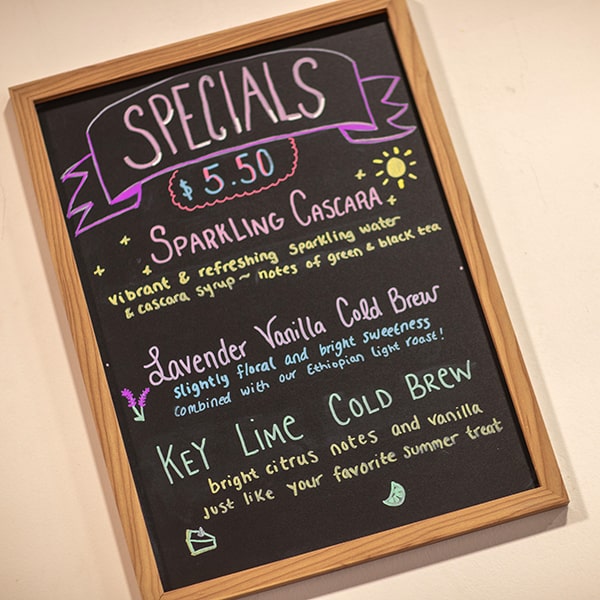 SPECIALS
$5.50
SPARKLING CASCARA
vibrant & refreshing sparkling water
& cascara syrup ~ notes of green & black tea
Lavender Vanilla Cold Brew
slightly floral and bright sweetness
combined with our Ethiopian light roast!
KEY LIME COLD BREW
bright citrus notes and vanilla
just like your favorite summer treat